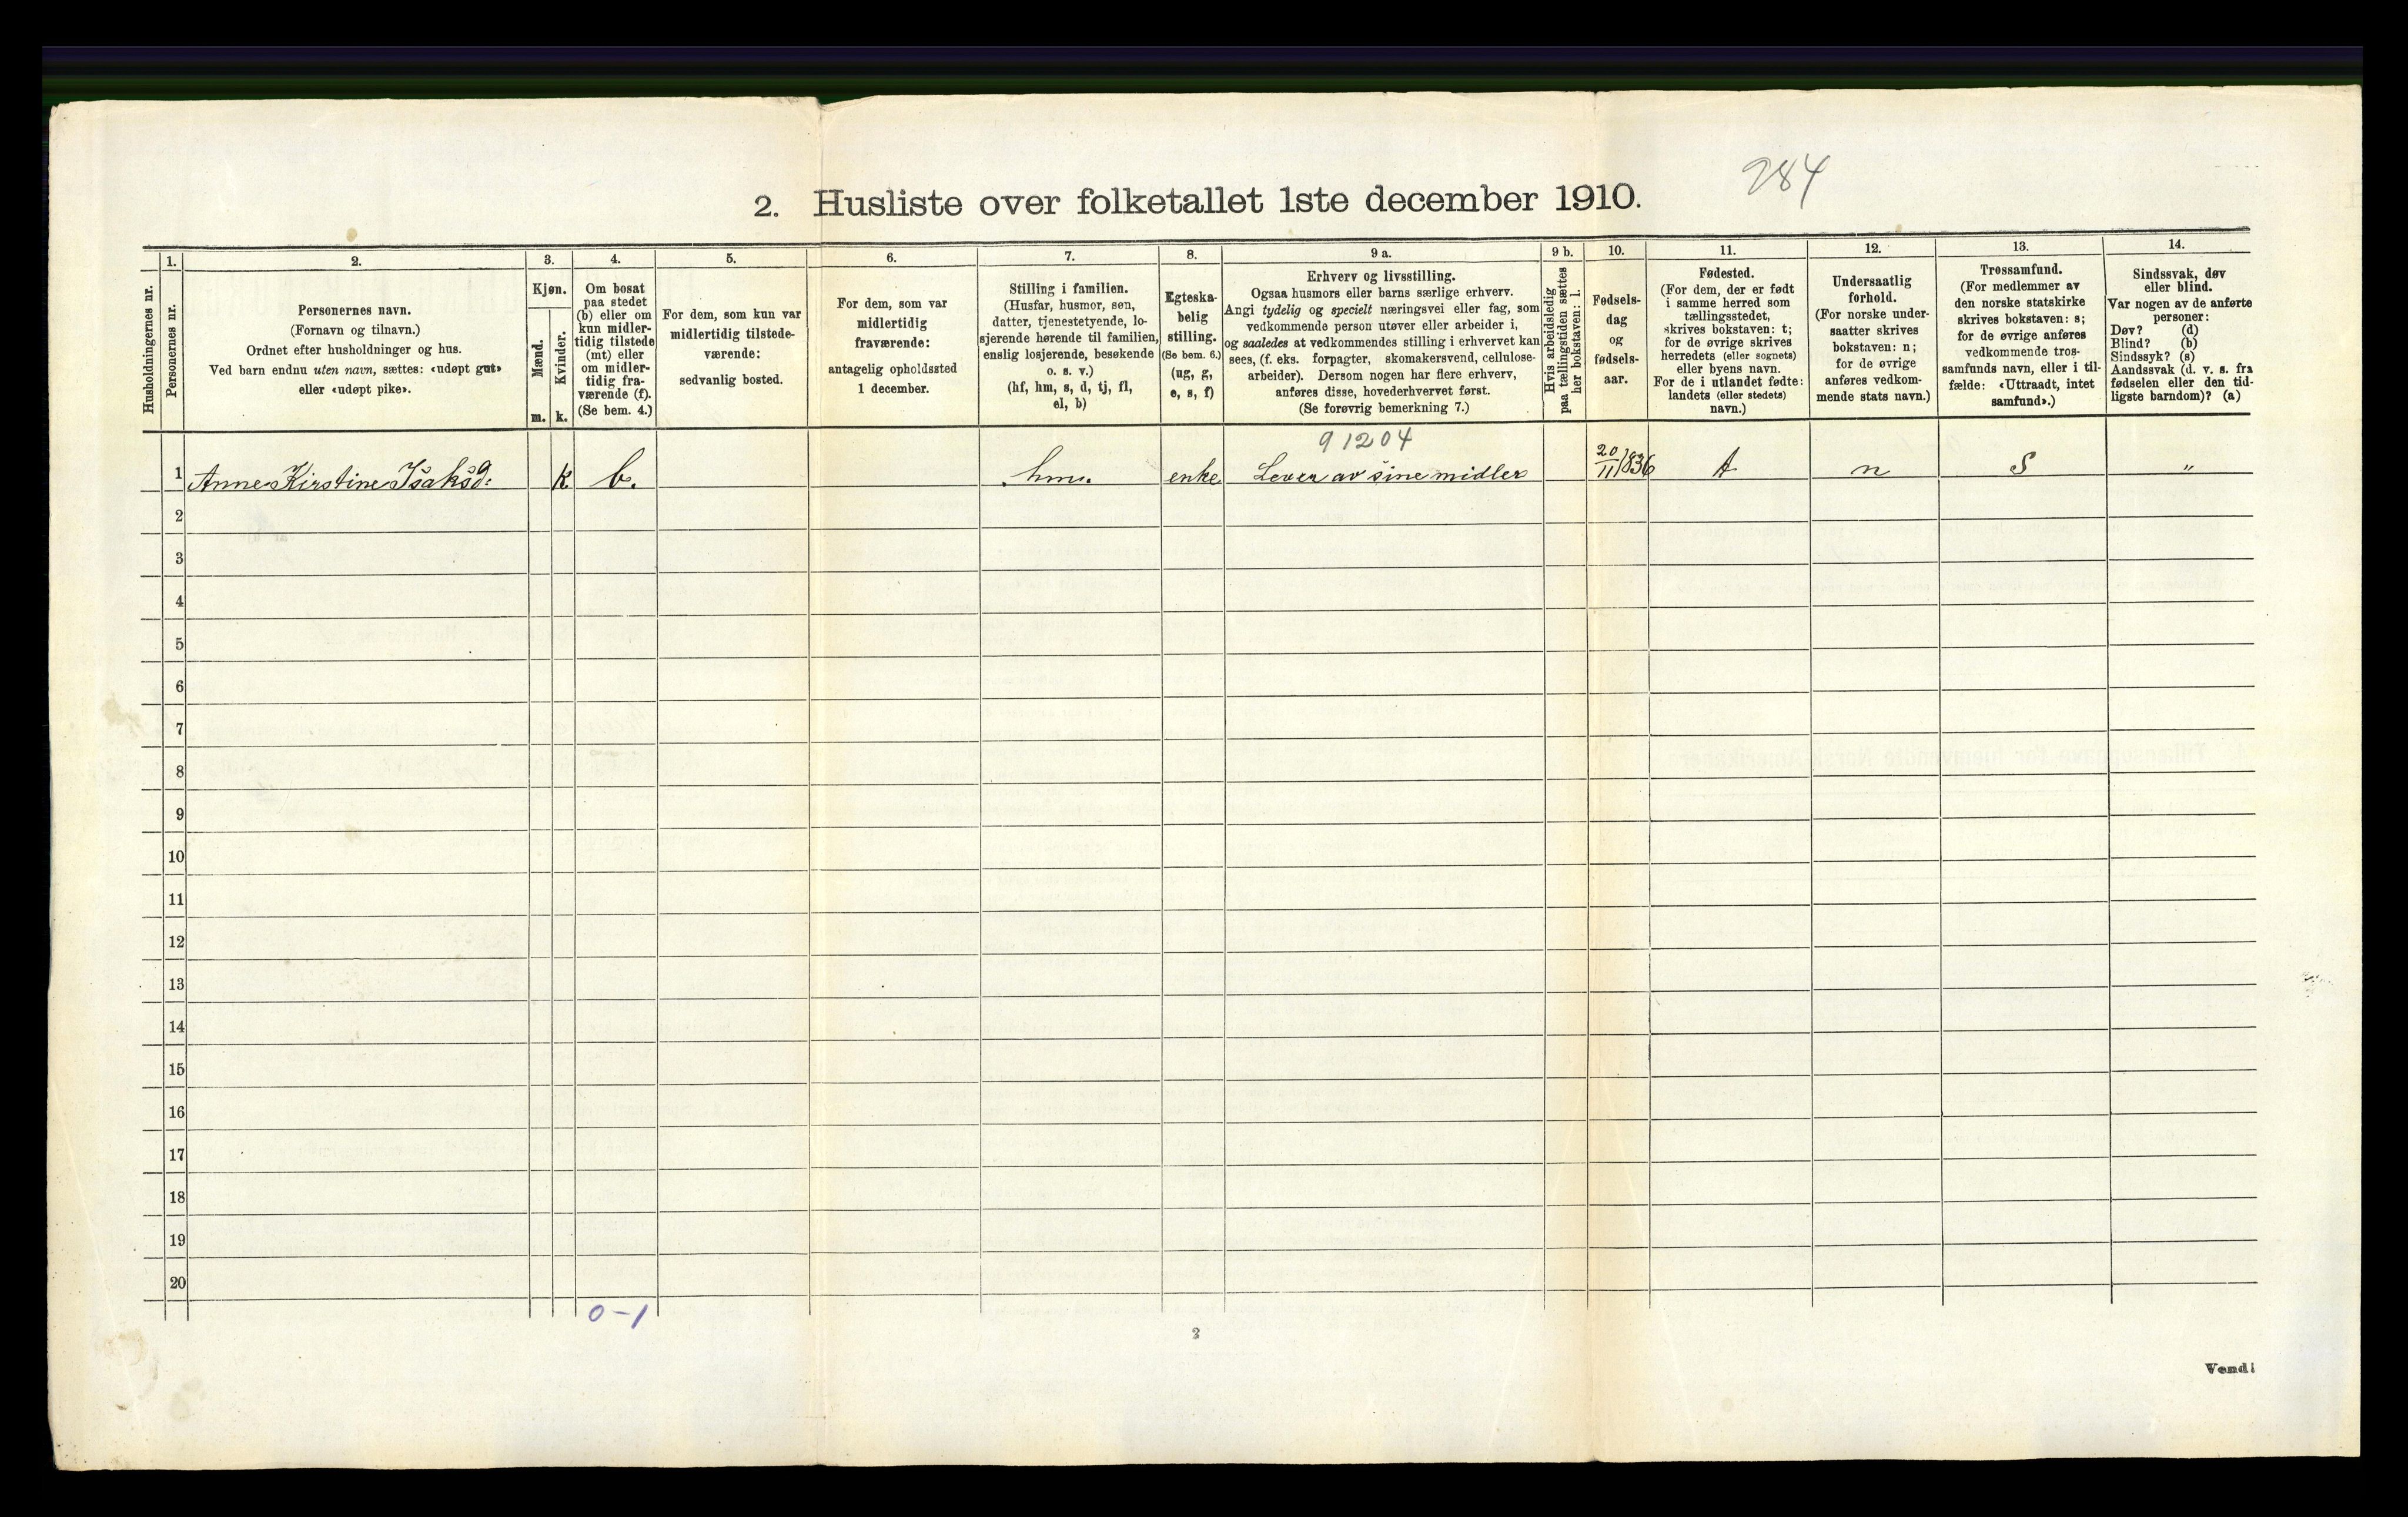 284
2. Husliste over folketallet 1ste december 1910.
Husholdningernes nr.
1.
Personernes nr.
2.
Personernes navn.
(Fornavn og tilnavn.)
Ordnet efter husholdninger og hus.
Ved barn endnu uten navn, sættes: «udøpt gut»
eller «udøpt pike».
3.
Kjøn.
Mænd.
m.
Kvinder.
k.
4.
Om bosat
paa stedet
(b) eller om
kun midler-
tidig tilstede
(mt) eller
om midler-
tidig fra-
værende (f).
(Se bem. 4.)
5.
For dem, som kun var
midlertidig tilstede-
værende:
sedvanlig bosted.
6.
For dem, som var
midlertidig
fraværende:
antagelig opholdssted
1 december.
7.
Stilling i familien.
(Husfar, husmor, søn,
datter, tjenestetyende, lo-
sjerende hørende til familien,
enslig losjerende, besøkende
o. s. v.)
(hf, hm, s, d, tj, fl,
el, b)
8.
Egteska-
belig
stilling.
(Se bem. 6.)
(ug, g,
e, s, f)
9 a.
Erhverv og livsstilling.
Ogsaa husmors eller barns særlige erhverv.
Angi tydelig og specielt næringsvei eller fag, som
vedkommende person utøver eller arbeider i,
og saaledes at vedkommendes stilling i erhvervet kan
sees, (f. eks. forpagter, skomakersvend, cellulose-
arbeider). Dersom nogen har flere erhverv,
anføres disse, hovederhvervet først.
(Se forøvrig bemerkning 7.)
9 b.
Hvis arbeidsledig
paa tællingstiden sættes
her bokstaven: l.
10.
Fødsels-
dag
og
fødsels-
aar.
11.
Fødested.
(For dem, der er født
i samme herred som
tællingsstedet,
skrives bokstaven: t;
for de øvrige skrives
herredets (eller sognets)
eller byens navn.
For de i utlandet fødte:
landets (eller stedets)
navn.)
12.
Undersaatlig
forhold.
(For norske under-
saatter skrives
bokstaven: n;
for de øvrige
anføres vedkom-
mende stats navn.)
13.
Trossamfund.
(For medlemmer av
den norske statskirke
skrives bokstaven: s;
for de øvrige anføres
vedkommende tros-
samfunds navn, eller i til-
fælde: «Uttraadt, intet
samfund».)
14.
Sindssvak, døv
eller blind.
Var nogen av de anførte
personer:
Døv? (d)
Blind? (b)
Sindssyk? (s)
Aandssvak (d. v. s. fra
fødselen eller den tid-
ligste barndom)? (a)
91204
1 Anne Kirstine Isaksd: k b. hm. enke Lever av sine midler 20/11 1836 t n S "
2
3
4
5
6
7
8
9
10
11
12
13
14
15
16
17
18
19
20
0-1
2
Vend!